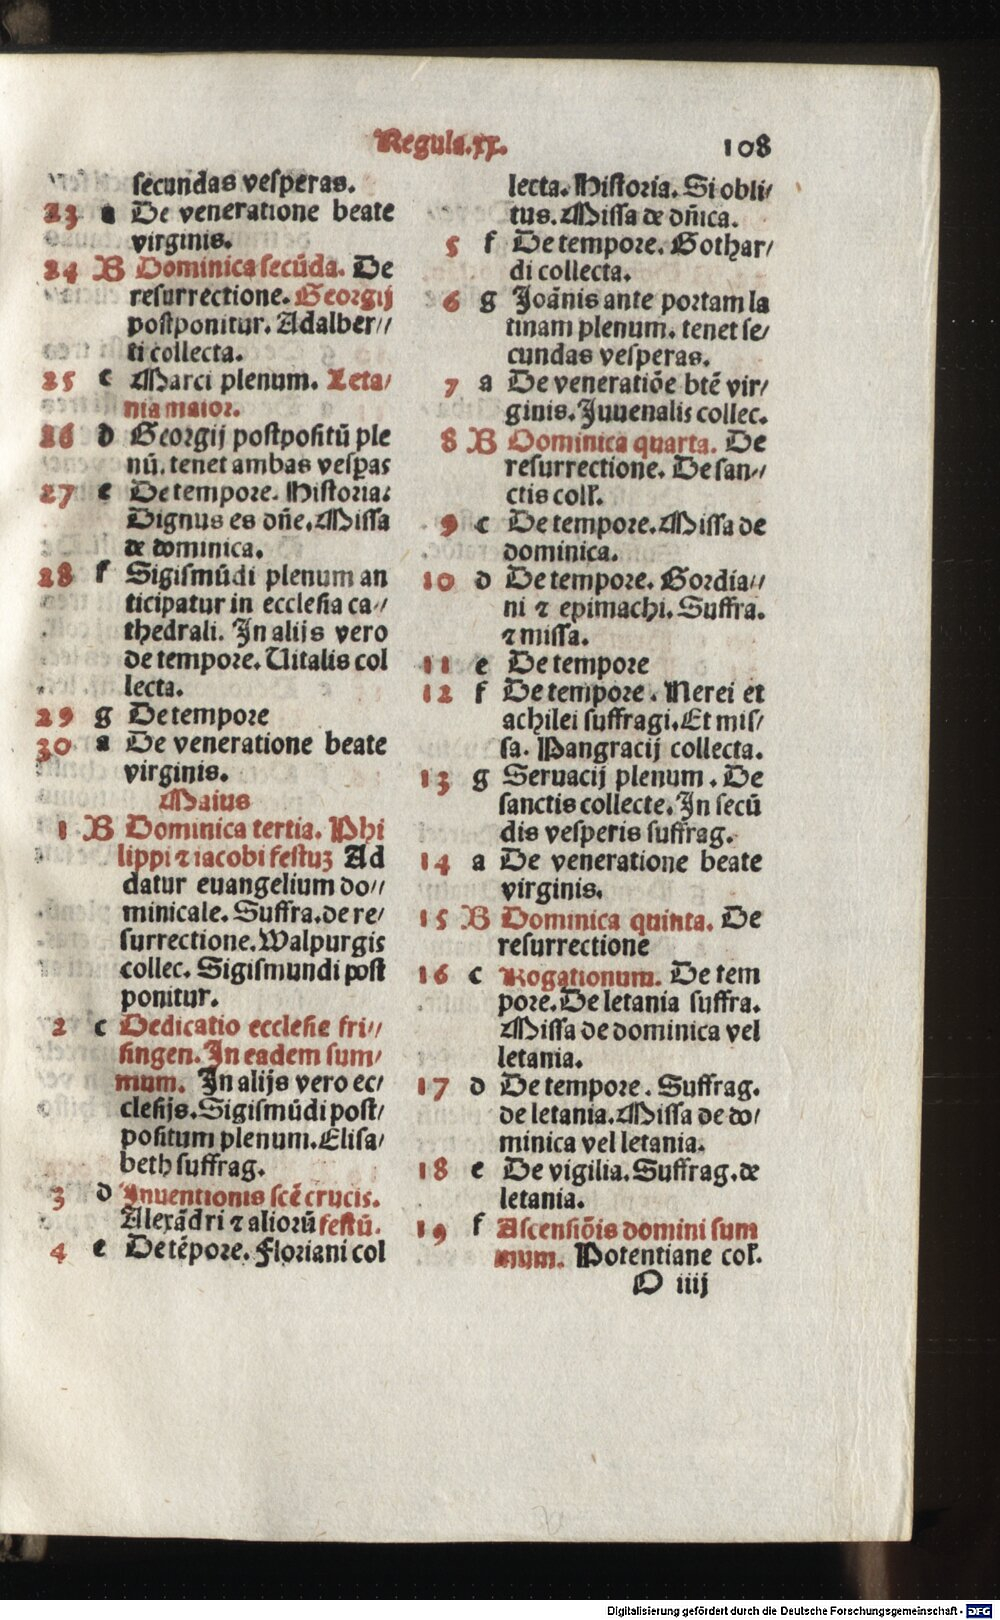 Regula.xx. 108
secundas vesperas.
23 a De veneratione beate
virginis.
24 B Dominica secūda. De
resurrectione. Georgij
postponitur. Adalber//
ti collecta.
25 c Marci plenum. Leta/
nia maior.
26 d Georgij postpositū ple
nū. tenet ambas vesꝑas
27 e De tempore. Historia:
Dignus es dñe. Missa
de dominica.
28 f Sigismūdi plenum an
ticipatur in ecclesia ca//
thedrali. In alijs vero
de tempore. Uitalis col
lecta.
29 g De tempore
30 a De veneratione beate
virginis.
Maius
1 B Dominica tertia. Phi
lippi ⁊ iacobi festuꝫ Ad
datur euangelium do//
minicale. Suffra. de re/
surrectione. Walpurgis
collec. Sigismundi post
ponitur.
2 c Dedicatio ecclesie fri//
singen. In eadem sum/
mum. In alijs vero ec/
clesijs. Sigismūdi post/
positum plenum. Elisa/
beth suffrag.
3 d Inuentionis scē crucis.
Alexādri ⁊ aliorū festū.
4 e De tēpore. Floriani col
lecta. Historia. Si obli/
tus. Missa de dñica.
5 f De tempore. Gothar/
di collecta.
6 g Joānis ante portam la
tinam plenum. tenet se/
cundas vesperas.
7 a De veneratiōe btē vir/
ginis. Juuenalis collec.
8 B Dominica quarta. De
resurrectione. De san//
ctis coll'.
9 c De tempore. Missa de
dominica.
10 d De tempore. Gordia//
ni ⁊ epimachi. Suffra.
⁊ missa.
11 e De tempore
12 f De tempore. Nerei et
achilei suffragi. Et mis/
sa. Pangracij collecta.
13 g Seruacij plenum. De
sanctis collecte. In secū
dis vesperis suffrag.
14 a De veneratione beate
virginis.
15 B Dominica quinta. De
resurrectione
16 c Rogationum. De tem
pore. De letania suffra.
Missa de dominica vel
letania.
17 d De tempore. Suffrag.
de letania. Missa de do/
minica vel letania.
18 e De vigilia. Suffrag. de
letania.
19 f Ascensiōis domini sum
mum. Potentiane col'.
O iiij
Digitalisierung gefördert durch die Deutsche Forschungsgemeinschaft - DFG